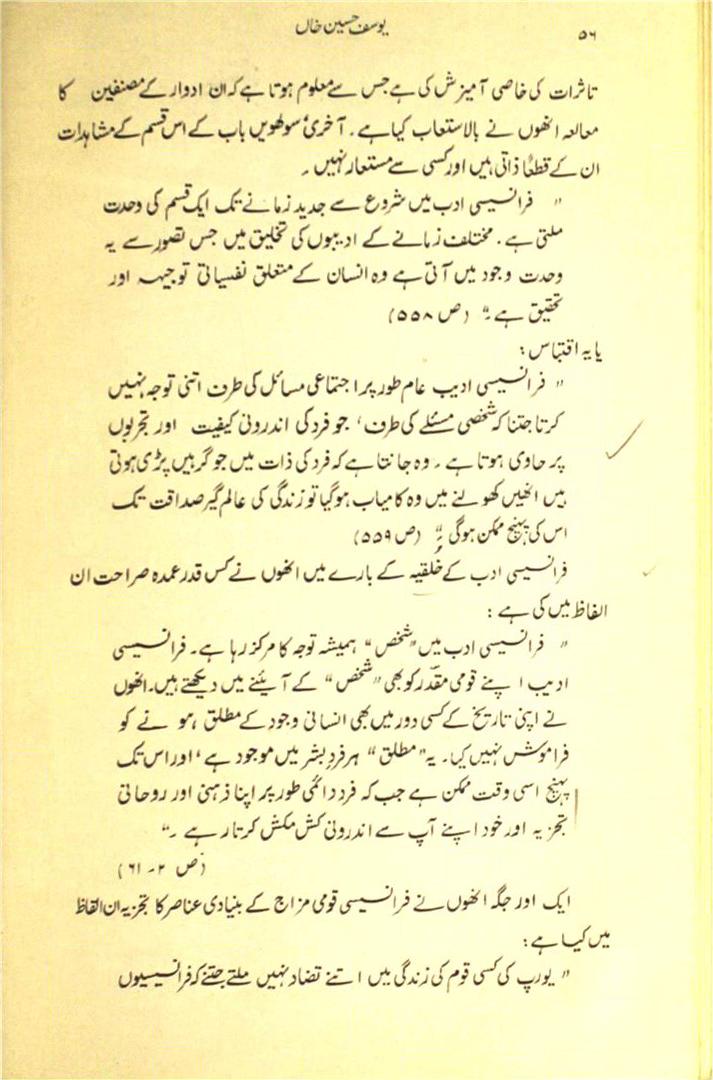 ۵۶
یوسف حسین خاں
تاثرات کی خاصی آمیزش کی ہے جس سے معلوم ہوتا ہے کہ ان ادوار کے مصنفین کا
معالعہ انھوں نے بالاستعاب کیا ہے۔ آخری سولھویں باب کے اس قسم کے مشاہدات
ان کے قطعاً ذاتی ہیں اور کسی سے مستعار نہیں۔
" فرانسیسی ادب میں شروع سے جدید زمانے تک ایک قسم کی وحدت
ملتی ہے۔ مختلف زمانے کے ادیبوں کی تخلیق میں جس تصور سے یہ
وحدت وجود میں آتی ہے وہ انسان کے متعلق نفسیاتی توجیہہ اور
تحقیق ہے۔" (ص ۵۵۸)
یا یہ اقتباس:
" فرانسیسی ادیب عام طور پر اجتماعی مسائل کی طرف اتنی توجہ نہیں
کرتا جتنا کہ شخصی مسئلے کی طرف، جو فرد کی اندرونی کیفیت اور تجربوں
پر حاوی ہوتا ہے۔ وہ جانتا ہے کہ فرد کی ذات میں جو گرہیں پڑی ہوتی
ہیں انھیں کھولنے میں وہ کامیاب ہوگیا تو زندگی کی عالم گیر صداقت تک
اس کی پہنچ ممکن ہوگی۔" (ص ۵۵۹)
فرانسیسی ادب کے خلقیہ کے بارے میں انھوں نے کس قدر عمدہ صراحت ان
الفاظ میں کی ہے:
" فرانسیسی ادب میں "شخص" ہمیشہ توجہ کا مرکز رہا ہے۔ فرانسیسی
ادیب اپنے قومی مقدّر کو بھی "شخص" کے آیئنے میں دیکھتے ہیں۔ انھوں
نے اپنی تاریخ کے کسی دور میں بھی انسانی وجود کے مطلق ہونے کو
فراموش نہیں کیا۔ یہ "مطلق" ہر فردِ بشر میں موجود ہے، اور اس تک
پہنچ اسی وقت ممکن ہے جب کہ فرد دائمی طور پر اپنا ذہنی اور روحانی
تجزیہ اور خود اپنے آپ سے اندرونی کش مکش کرتا رہے۔"
(ص ۲-۶۱)
ایک اور جگہ انھوں نے فرانسیسی قومی مزاج کے بنیادی عناصر کا تجزیہ ان الفاظ
میں کیا ہے:
" یورپ کی کسی قوم کی زندگی میں اتنے تضاد نہیں ملتے جتنے کہ فرانسیسیوں